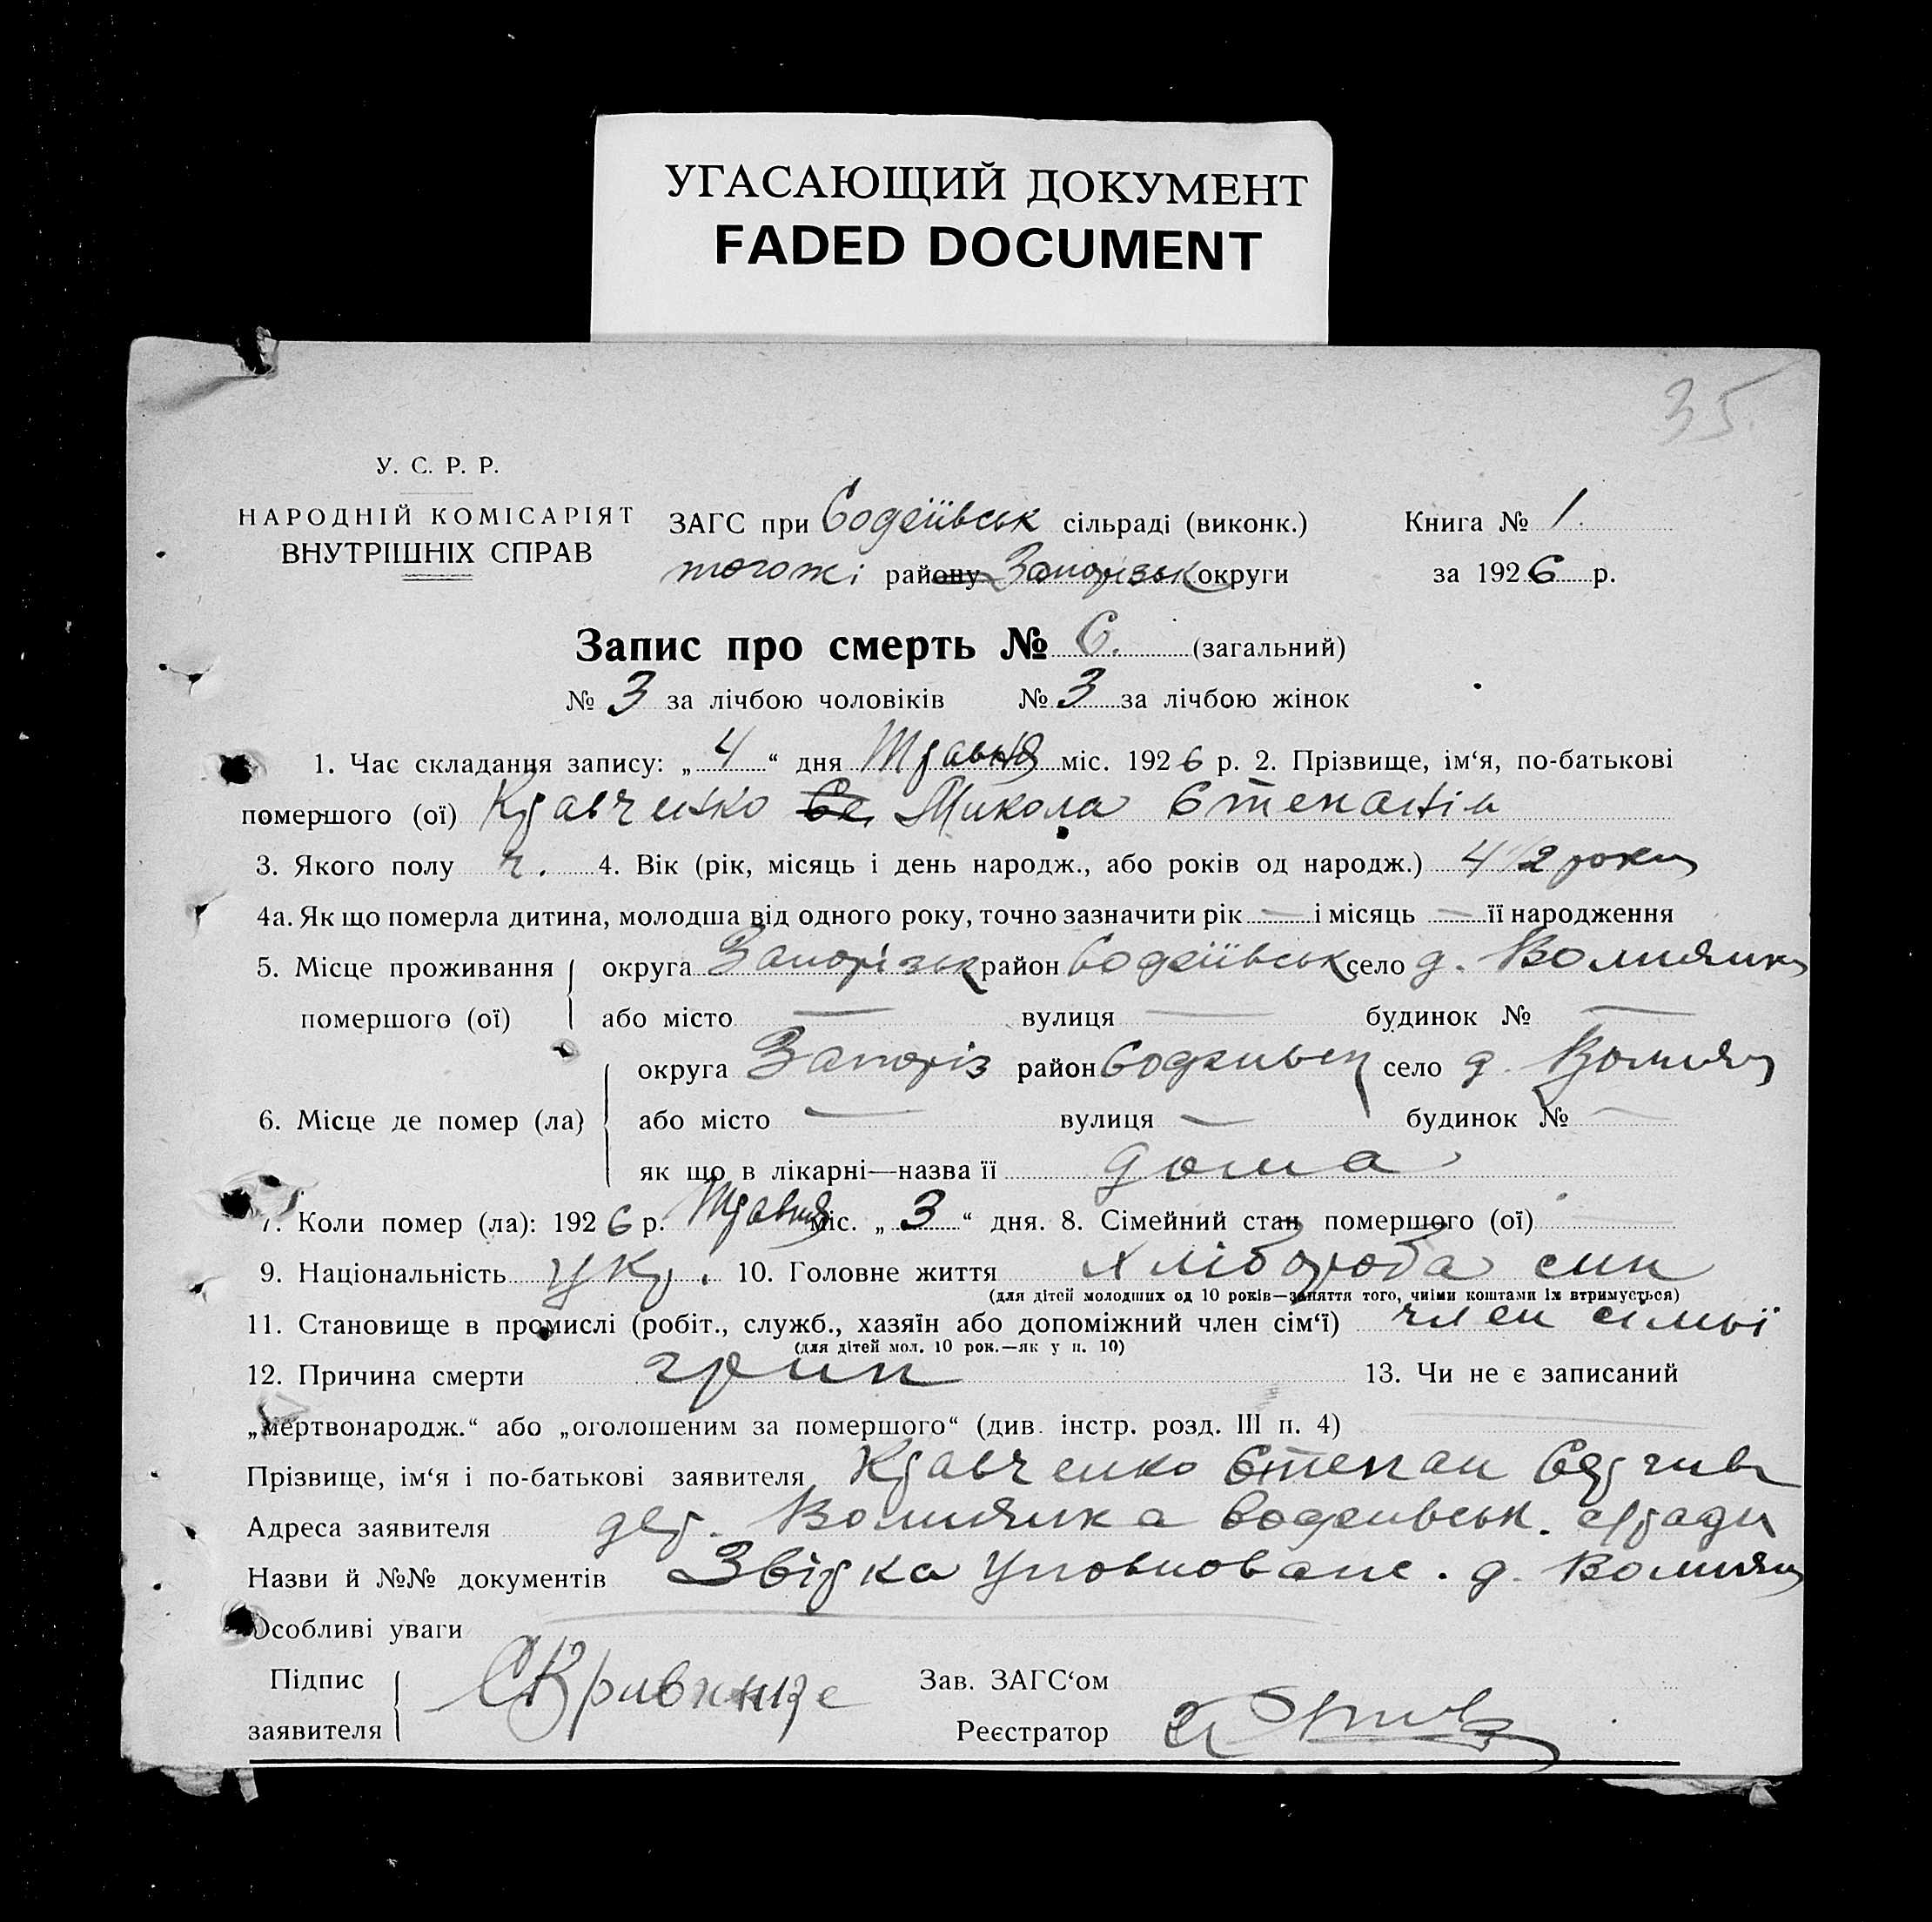 УГАСАЮЩИЙ ДОКУМЕНТ
FADED DOCUMENT
35
У. С. Р. Р.
НАРОДНІЙ КОМІСАРІЯТ
ВНУТРІШНІХ СПРАВ
ЗАГС при сільраді (виконк.)
тогожі району Запорізьк округи
Книга № 1.
за 1926 р.
Запис про смерть № 6. (загальний)
№ 3 за лічбою чоловіків № 3 за лічбою жінок
1. Час складання запису: „ 4 “ дня Травня міс. 1926 р. 2. Прізвище, ім‘я, по-батькові
помершого (ої) Кравченко Микола Степанів
3. Якого полу ч. 4. Вік (рік, місяць і день народж., або років од народж.) 4 1/2 роки
4а. Як що померла дитина, молодша від одного року, точно зазначити рік — і місяць — її народження
5. Місце проживання округа Запорізьк район село д.
помершого (ої) або місто — вулиця — будинок № —
округа Запоріз район село д.
6. Місце де помер (ла) або місто — вулиця — будинок № —
як що в лікарні—назва її дома
7. Коли помер (ла): 1926 р. Травня міс. „ 3 “ дня. 8. Сімейний стан помершого (ої) —
9. Національність укр. 10. Головне життя хлібороба син
(для дітей молодших од 10 років—заняття того, чиїми коштами їх втримується)
11. Становище в промислі (робіт., служб., хазяїн або допоміжний член сім‘ї) член сімьї
(для дітей мол. 10 рок.—як у п. 10)
12. Причина смерти грип 13. Чи не є записаний
„мертвонародж.“ або „оголошеним за помершого“ (див. інстр. розд. III п. 4)
Прізвище, ім‘я і по-батькові заявителя Кравченко Степан
Адреса заявителя дер.
Назви й №№ документів д.
Особливі уваги
Підпис
заявителя
Зав. ЗАГС‘ом
Реєстратор